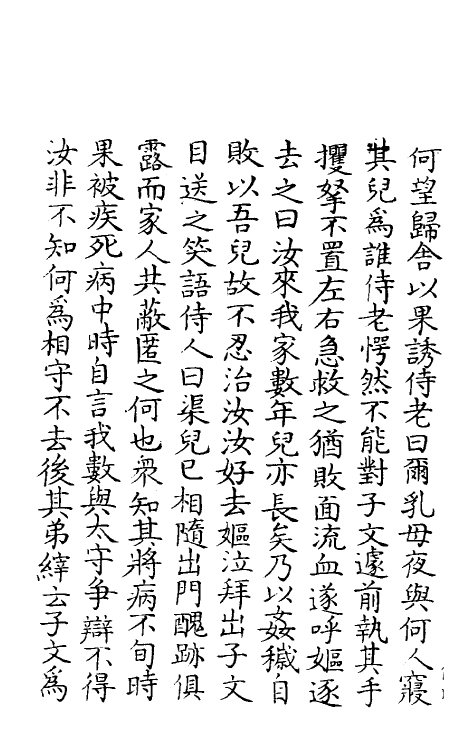 何望歸舍以果誘侍老曰爾乳母夜與何人寢
其兒爲誰侍老愕然不能對子文遽前執其手
攫拏不置左右急救之猶敗面流血遂呼嫗逐
去之曰汝來我家數年兒亦長矣乃以姦穢自
敗以吾兒故不忍治汝汝好去嫗泣拜出子文
目送之笑語侍人曰渠兒已相隨出門醜跡俱
露而家人共蔽匿之何也衆知其將病不旬時
果被疾死病中時自言我數與太守爭辯不得
汝非不知何爲相守不去後其弟繹云子文爲